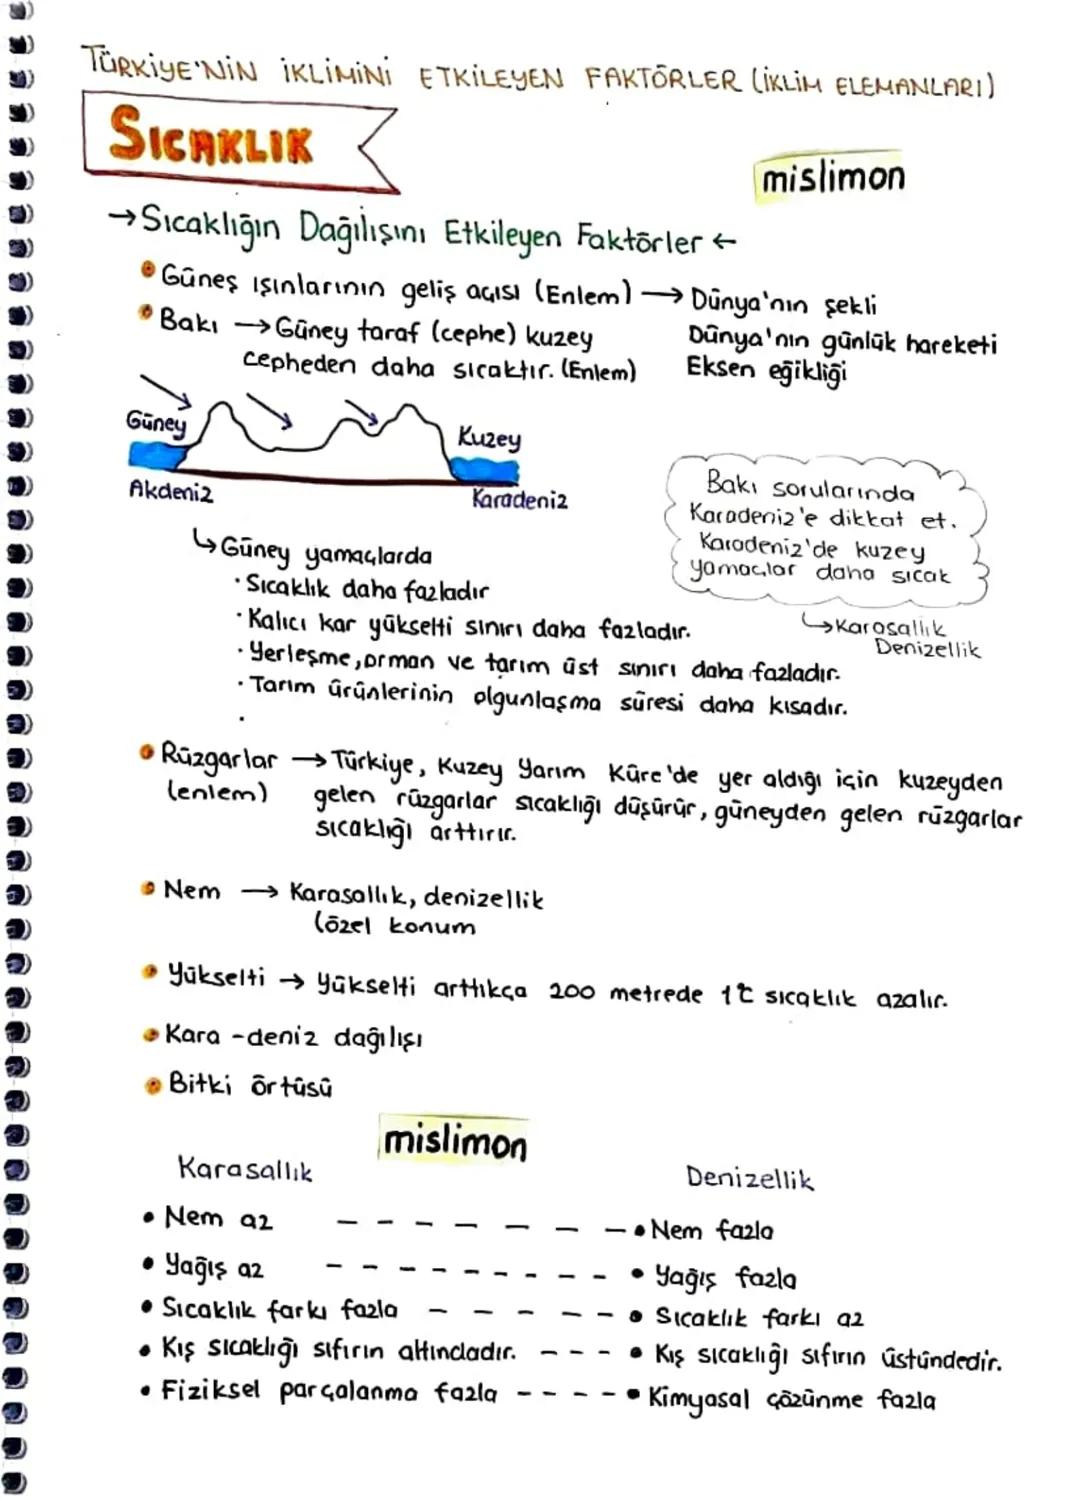 TÜRKİYE'NİN İKLİMİNİ ETKİLEYEN FAKTÖRLER (İKLİM ELEMANLARI)
SICAKLIK
mislimon
→Sıcaklığın Dağılışını Etkileyen Faktörler ←
• Güneş ışınlarının geliş açısı (Enlem) → Dünya'nın şekli
Dünya'nın günlük hareketi
Eksen eğikliği
• Bakı → Güney taraf (cephe) kuzey
cepheden daha sıcaktır. (Enlem)
Güney
Kuzey
Akdeniz
Karadeniz
Bakı sorularında
Karadeniz'e dikkat et.
Karadeniz'de kuzey
yamaçlar daha sıcak
↳Karasallık
Denizellik
↳Güney yamaçlarda
· Sıcaklık daha fazladır
· Kalıcı kar yükselti sınırı daha fazladır.
· Yerleşme, orman ve tarım üst sınırı daha fazladır.
· Tarım ürünlerinin olgunlaşma süresi daha kısadır.
·
• Rüzgarlar → Türkiye, Kuzey Yarım Küre'de yer aldığı için kuzeyden
(enlem) gelen rüzgarlar sıcaklığı düşürür, güneyden gelen rüzgarlar
sıcaklığı arttırır.
• Nem → Karasallık, denizellik
(özel konum
• Yükselti → Yükselti arttıkça 200 metrede 1℃ sıcaklık azalır.
• Kara -deniz dağılışı
• Bitki örtüsü
mislimon
Karasallık Denizellik
• Nem az - - - - - - - - • Nem fazla
• Yağış az - - - - - - - - - • Yağış fazla
• Sıcaklık farkı fazla - - - - - - • Sıcaklık farkı az
• Kış sıcaklığı sıfırın altındadır. - - - • Kış sıcaklığı sıfırın üstündedir.
• Fiziksel parçalanma fazla - - - - - • Kimyasal çözünme fazla